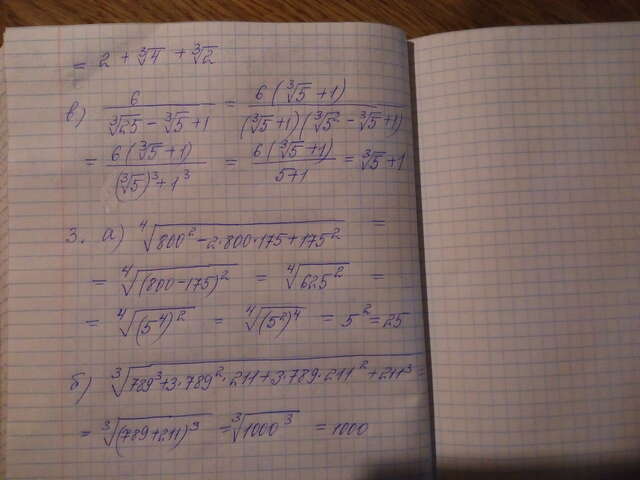 = 2 + ∛4 + ∛2
в) 6/(∛25 − ∛5 + 1) = 6(∛5 + 1)/((∛5 + 1)(∛5² − ∛5 + 1))
= 6(∛5 + 1)/((∛5)³ + 1³) = 6(∛5 + 1)/(5+1) = ∛5 + 1
3. а) ∜(800² − 2·800·175 + 175²) =
= ∜((800 − 175)²) = ∜(625²) =
= ∜((5⁴)²) = ∜((5²)⁴) = 5² = 25
б) ∛(789³ + 3·789²·211 + 3·789·211² + 211³) =
= ∛((789 + 211)³) = ∛(1000³) = 1000